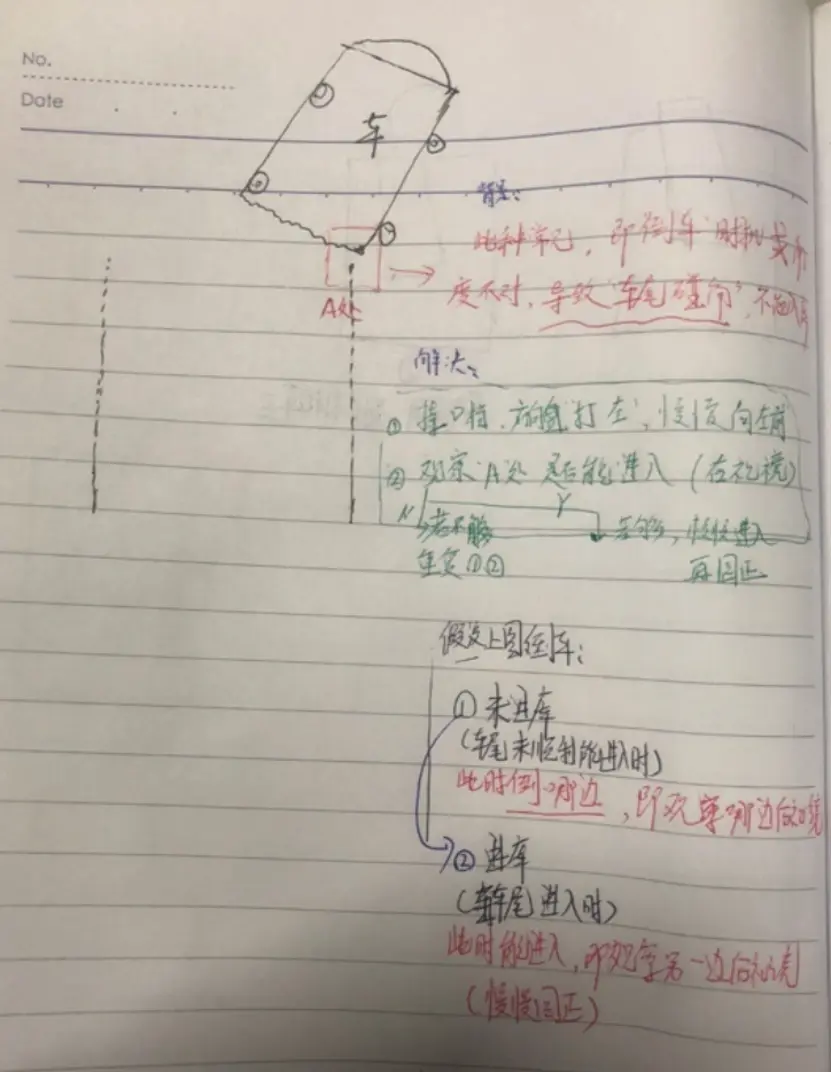 No.
Date
车
背景:
此种常见,即倒车时机
度不对,导致"车尾碰角",不能入库
A处
解决:
① 挂D档,方向盘"打左",慢慢向左前
② 观察"A处"是否能进入(右视镜)
N Y
若不够 若够,慢慢进入
重复①② 再回正
假设上图倒车:
① 未进库
(车尾未顺利能进入时)
此时倒哪边,即观察哪边后视镜
② 进库
(车尾进入时)
此时能进入,即观察另一边后视镜
(慢慢回正)